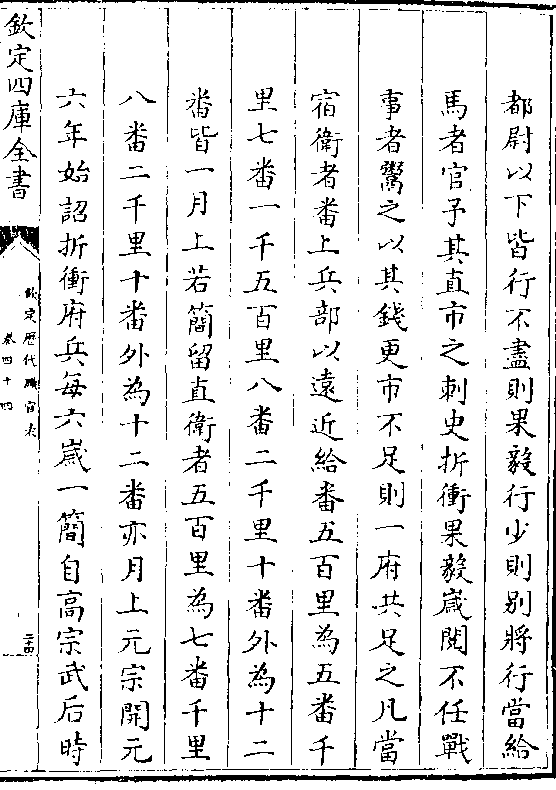 都尉以下皆行不盡則果毅行少則别將行當給
馬者官予其直市之刺史折衝果毅嵗閱不任戰
事者鬻之以其錢更市不足則一府共足之凡當
宿衛者番上兵部以遠近給番五百里為五番千
里七番一千五百里八番二千里十番外為十二
番皆一月上若簡留直衛者五百里為七番千里
八番二千里十番外為十二番亦月上元宗開元
六年始詔折衝府兵每六嵗一簡自高宗武后時
欽定四庫全書
欽定歷代職官表
卷四十四